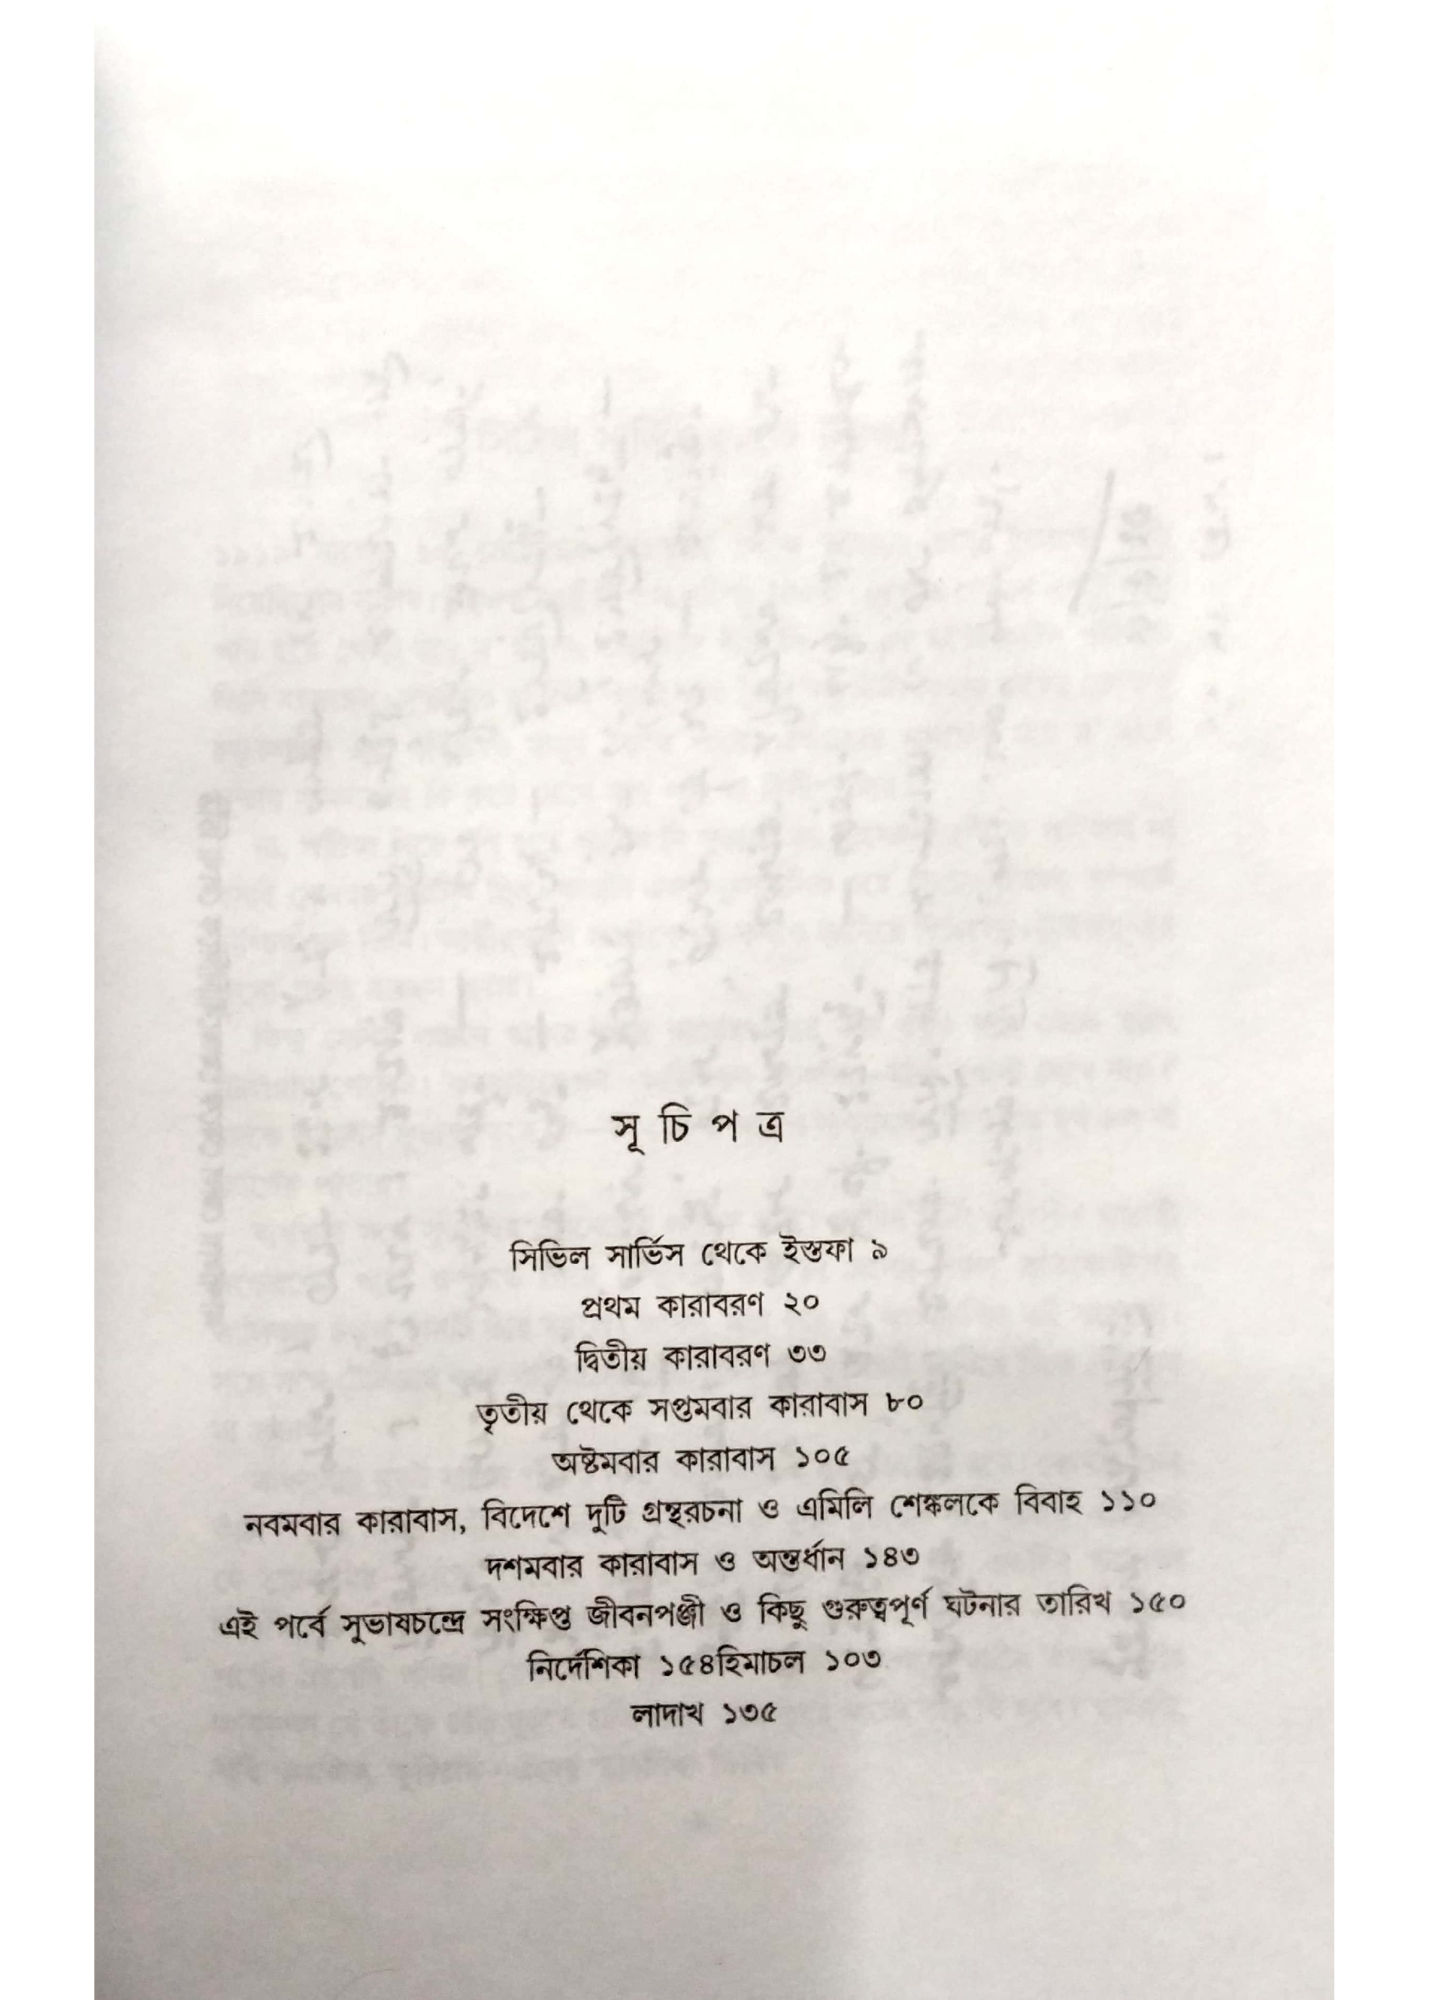 সূ চি প ত্র
সিভিল সার্ভিস থেকে ইস্তফা ৯
প্রথম কারাবরণ ২০
দ্বিতীয় কারাবরণ ৩৩
তৃতীয় থেকে সপ্তমবার কারাবাস ৮০
অষ্টমবার কারাবাস ১০৫
নবমবার কারাবাস, বিদেশে দুটি গ্রন্থরচনা ও এমিলি শেঙ্কলকে বিবাহ ১১০
দশমবার কারাবাস ও অন্তর্ধান ১৪৩
এই পর্বে সুভাষচন্দ্রে সংক্ষিপ্ত জীবনপঞ্জী ও কিছু গুরুত্বপূর্ণ ঘটনার তারিখ ১৫০
নির্দেশিকা ১৫৪হিমাচল ১০৩
লাদাখ ১৩৫